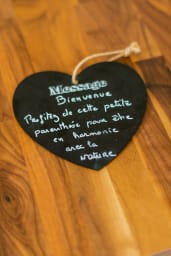 Message
Bienvenue
Profitez de cette petite
parenthèse pour être
en harmonie
avec la
nature